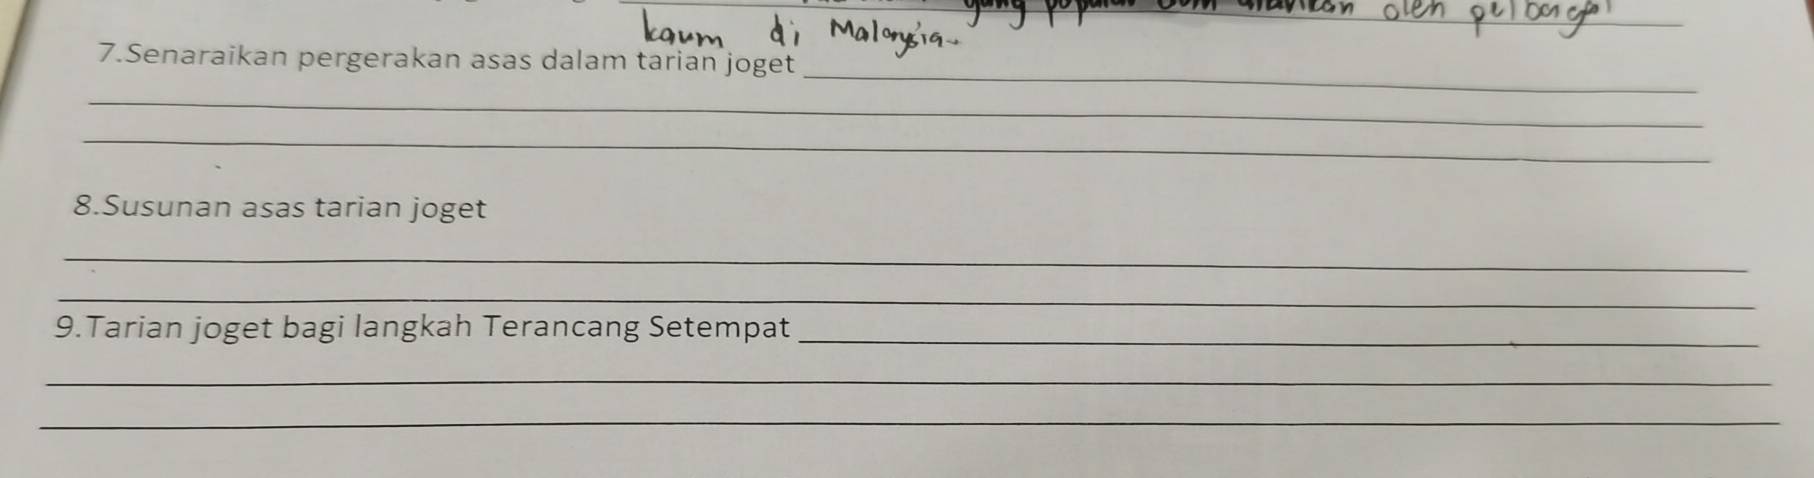 yang popular dan ditarikan oleh pelbagai
kaum di Malaysia.
7.Senaraikan pergerakan asas dalam tarian joget
8.Susunan asas tarian joget
9.Tarian joget bagi langkah Terancang Setempat